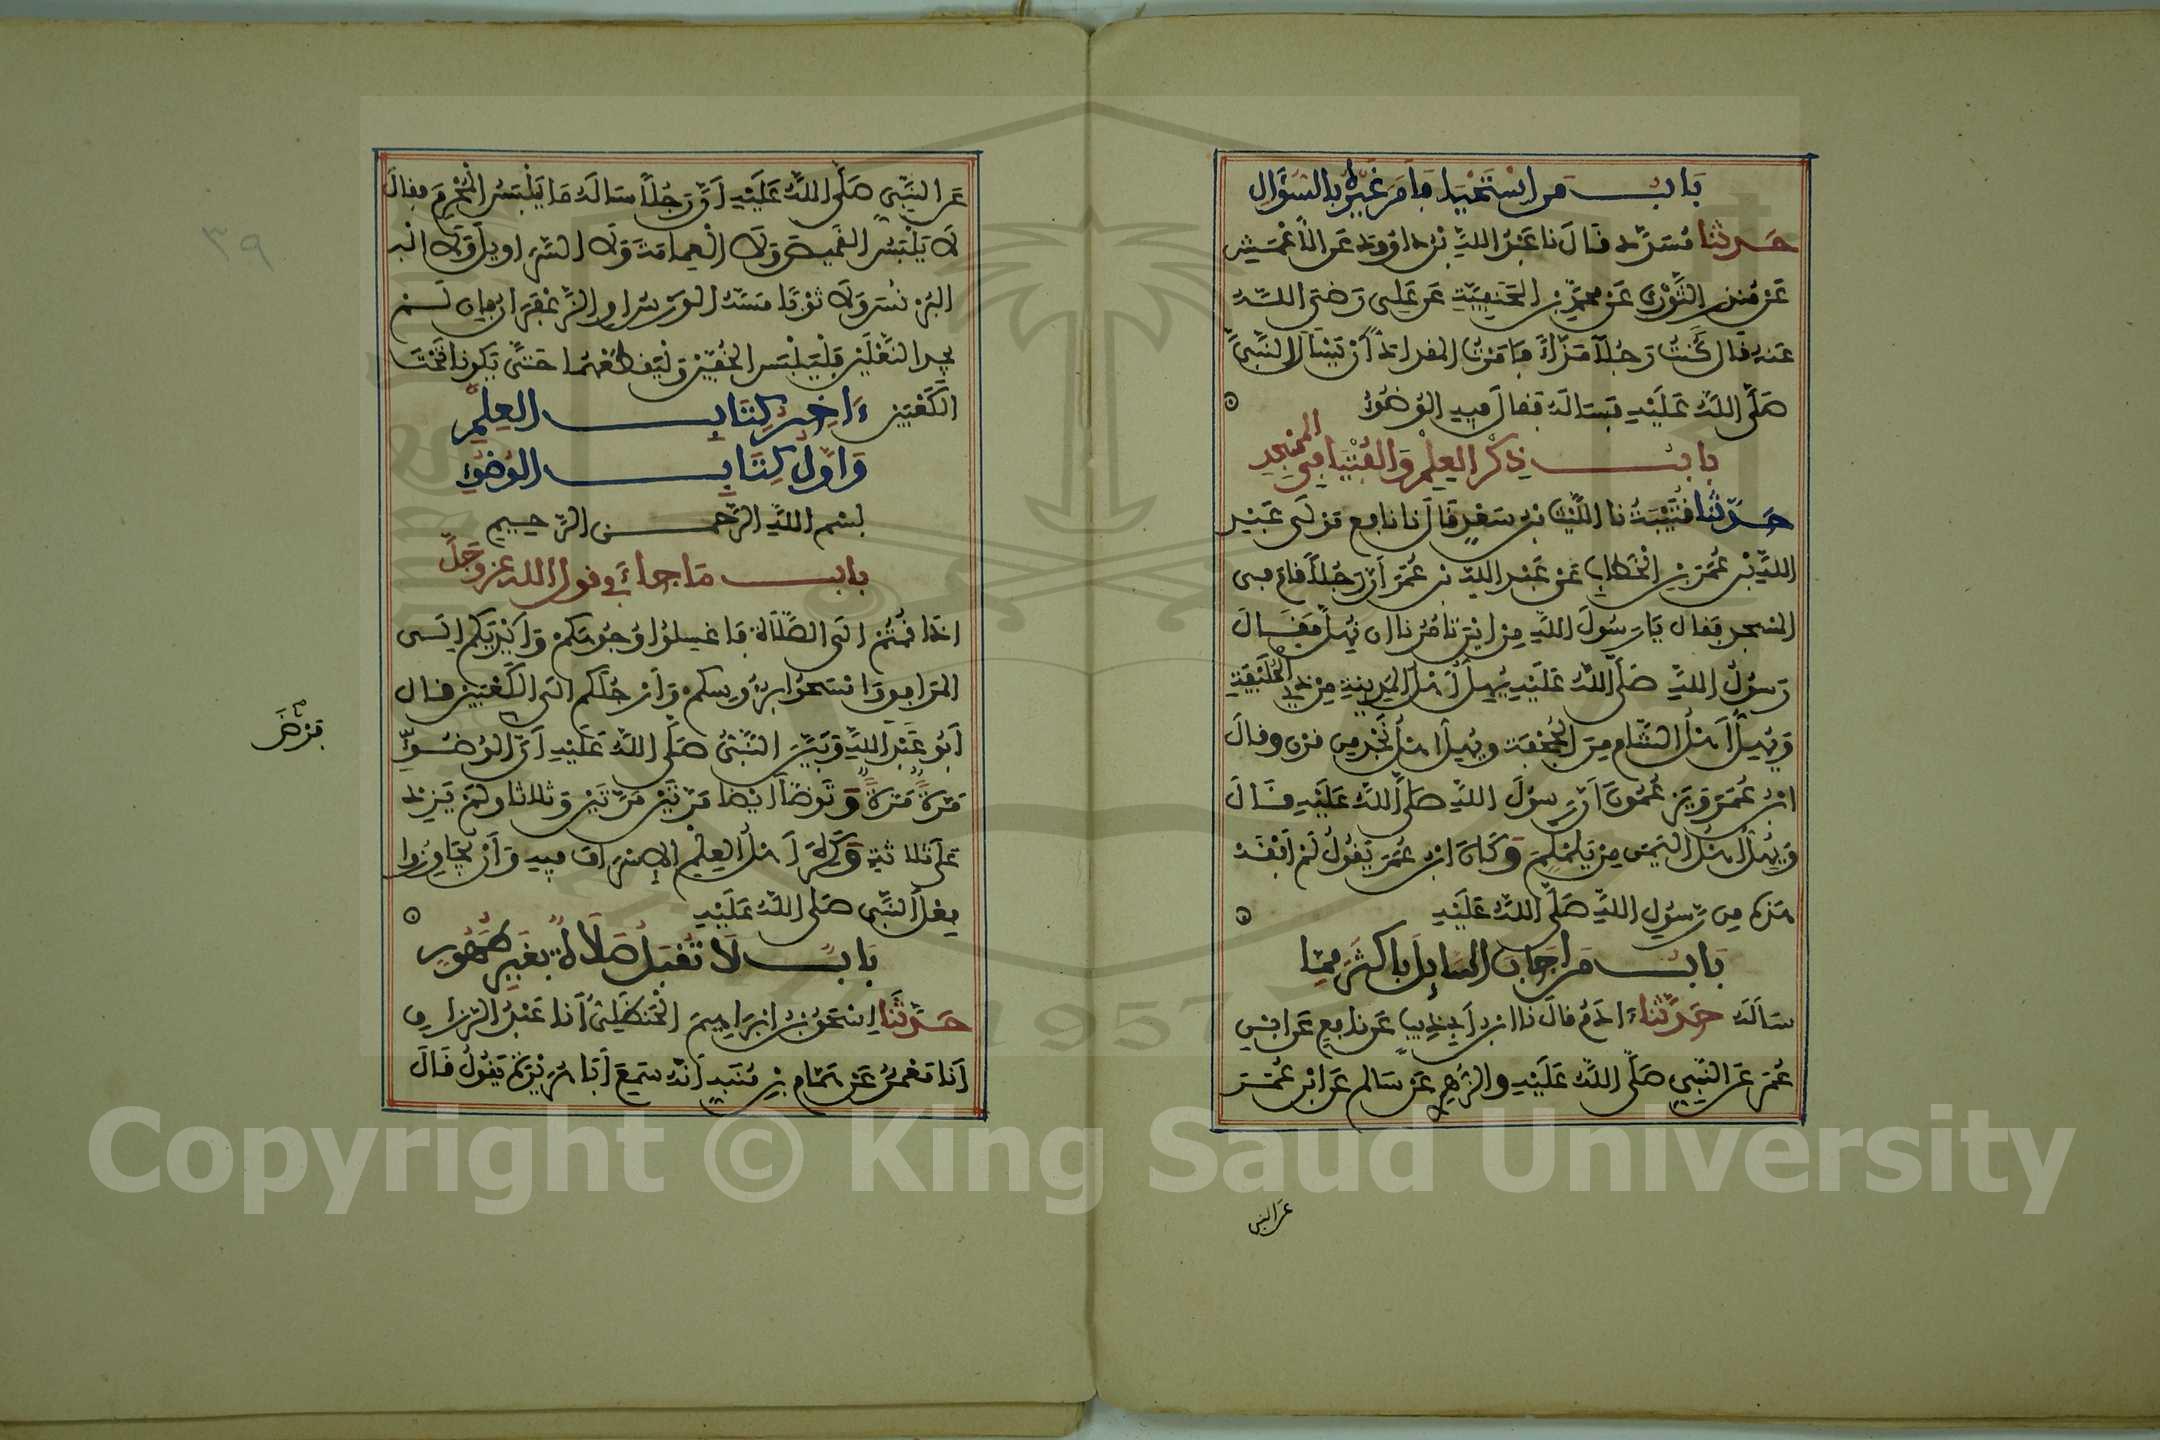 باب من استحيا فأمر غيره بالسؤال
حدثنا مسدد قال نا عبد الله بن داوود عن الأعمش
عن منذر الثوري عن محمد بن الحنفية عن علي رضي الله
عنه قال كنت رجلا مذاء فأمرت المقداد أن يسأل النبي
صلى الله عليه فسأله فقال فيه الوضوء
باب ذكر العلم والفتيا في المسجد
حدثنا قتيبة نا الليث بن سعد قال نا نافع مولى عبد
الله بن عمر بن الخطاب عن عبد الله بن عمر أن رجلا قام في
المسجد فقال يا رسول الله من اين تامرنا ان نهل فقال
رسول الله صلى الله عليه يهل أهل المدينة من ذي الحليفة
ويهل أهل الشام من الجحفة ويهل اهل نجد من قرن وقال
ابن عمر ويزعمون أن رسول الله صلى الله عليه قال
ويهل أهل اليمن من يلملم وكان ابن عمر يقول لم أفقه
هذه من رسول الله صلى الله عليه
باب من أجاب السايل بأكثر مما
سأله حدثنا ءادم قال نا ابن أبي ذيب عن نافع عن ابن
عمر عن النبي صلى الله عليه والزهري عن سالم عن ابن عمر
عن النبي
عن النبي صلى الله عليه أن رجلا ساله ما يلبس المحرم فقال
لا يلبس القميص ولا العمامة ولا السراويل ولا البر
البرنس ولا ثوبا مسه الورس او الزعفران فإن لم
يجد النعلين فليلبس الخفين وليقطعهما حتى يكونا تحت
الكعبين ءاخر كتاب العلم
وأول كتاب الوضوء
بسم الله الرحمن الرحيم
باب ما جاء في قول الله عز وجل
اذا قمتم الى الصلاة فاغسلوا وجوهكم وأيديكم إلى
المرافق وامسحوا برءوسكم وأرجلكم الى الكعبين قال
أبو عبد الله وبين النبي صلى الله عليه أن الوضوء
مرة مرة وتوضأ أيضا مرتين مرتين وثلاثا ولم يزد
على ثلاثة وكره أهل العلم الإسراف فيه وأن يجاوزوا
فعل النبي صلى الله عليه
باب لا تقبل صلاة بغير طهور
حدثنا إسحق بن ابراهيم الحنظلي أنا عبد الرزاق
أنا معمر عن همام بن منبه أنه سمع أبا هريرة يقول قال
٣٩